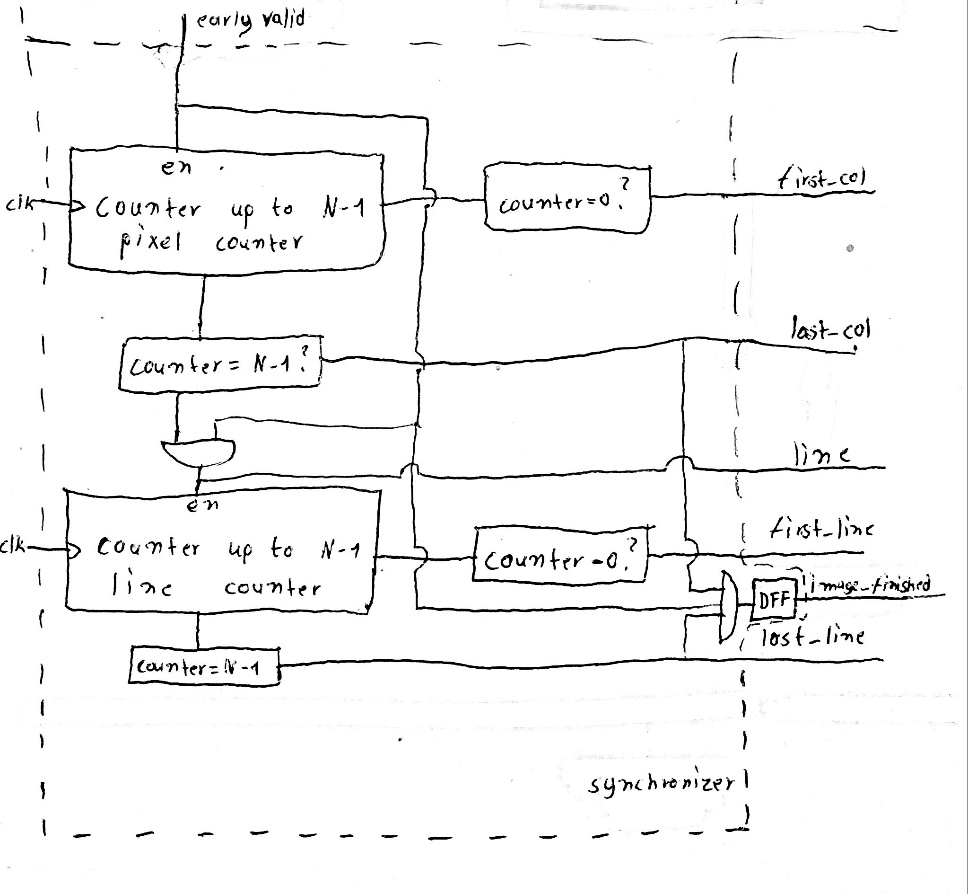 early valid
en
clk
Counter up to N-1
pixel counter
counter=0?
first_col
counter= N-1?
last_col
line
en
clk
Counter up to N-1
line counter
counter=0?
first_line
DFF
image_finished
last_line
counter=N-1
synchronizer